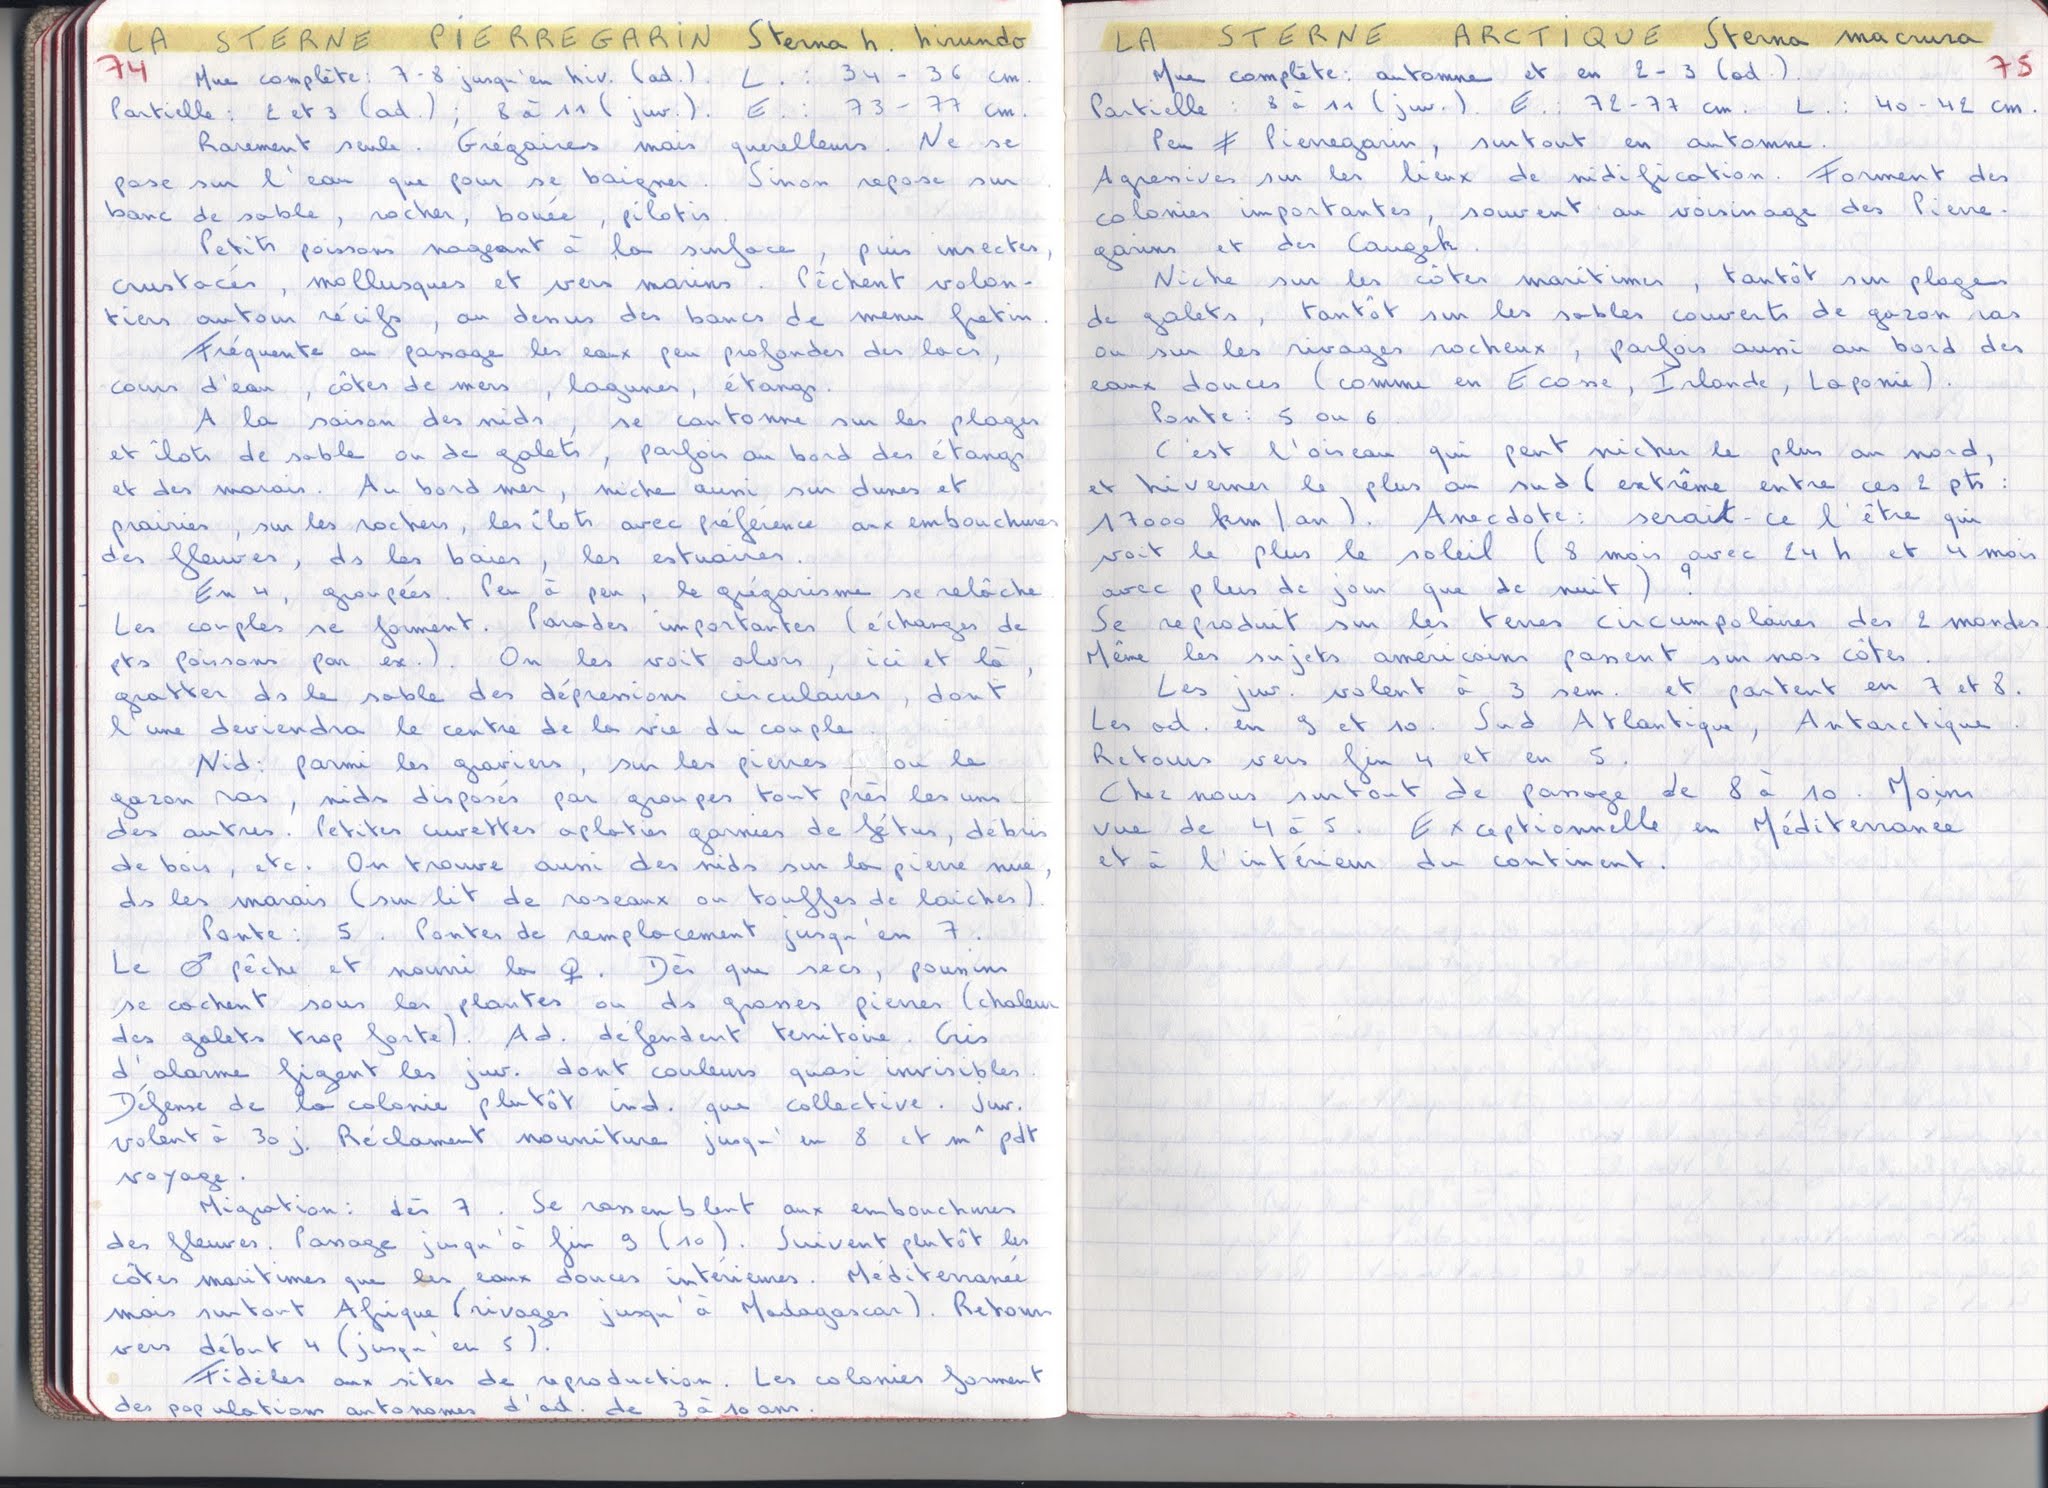 LA STERNE PIERREGARIN Sterna h. hirundo
74
Mue complète: 7-8 jusqu'en hiv. (ad.). L. : 34 - 36 cm.
Partielle : 2 et 3 (ad.) ; 8 à 11 (juv.). E. : 73 - 77 cm.
Rarement seule. Grégaires mais querelleurs. Ne se
pose sur l'eau que pour se baigner. Sinon repose sur
banc de sable, rocher, bouée, pilotis.
Petits poissons nageant à la surface, puis insectes,
crustacés, mollusques et vers marins. Pêchent volon-
tiers autour récifs, au dessus des bancs de menu fretin.
Fréquente au passage les eaux peu profondes des lacs,
cours d'eau, côtes de mers, lagunes, étangs.
A la saison des nids, se cantonne sur les plages
et îlots de sable ou de galets, parfois au bord des étangs
et des marais. Au bord mer, niche aussi sur dunes et
prairies, sur les rochers, les îlots avec préférence aux embouchures
des fleuves, ds les baies, les estuaires.
En 4, groupées. Peu à peu, le grégarisme se relâche.
Les couples se forment. Parades importantes (échanges de
pts poissons par ex.). On les voit alors, ici et là,
gratter ds le sable des dépressions circulaires, dont
l'une deviendra le centre de la vie du couple.
Nid: parmi les graviers, sur les pierres ou le
gazon ras, nids disposés par groupes tout près les uns
des autres. Petites cuvettes aplaties garnies de fétus, débris
de bois, etc. On trouve aussi des nids sur la pierre nue,
ds les marais (sur lit de roseaux ou touffes de laiches).
Ponte : 5. Pontes de remplacement jusqu'en 7.
Le ♂ pêche et nourri la ♀. Dès que secs, poussins
se cachent sous les plantes ou ds grosses pierres (chaleur
des galets trop forte). Ad. défendent territoire. Cris
d'alarme figent les juv. dont couleurs quasi invisibles.
Défense de la colonie plutôt ind. que collective. Juv.
volent à 30 j. Réclament nourriture jusqu'en 8 et m^ pdt
voyage.
Migration: dès 7. Se rassemblent aux embouchures
des fleuves. Passage jusqu'à fin 9 (10). Suivent plutôt les
côtes maritimes que les eaux douces intérieures. Méditerranée
mais surtout Afrique (rivages jusqu'à Madagascar). Retour
vers début 4 (jusqu'en 5).
Fidèles aux sites de reproduction. Les colonies forment
des populations autonomes d'ad. de 3 à 10 ans.
LA STERNE ARCTIQUE Sterna macrura
75
Mue complète: automne et en 2-3 (ad.).
Partielle : 8 à 11 (juv.). E. : 72-77 cm. L. : 40-42 cm.
Peu ≠ Pierregarin, surtout en automne.
Agressives sur les lieux de nidification. Forment des
colonies importantes, souvent au voisinage des Pierre-
garins et des Caugek.
Niche sur les côtes maritimes, tantôt sur plages
de galets, tantôt sur les sables couverts de gazon ras
ou sur les rivages rocheux, parfois aussi au bord des
eaux douces (comme en Ecosse, Irlande, Laponie).
Ponte : 5 ou 6.
C'est l'oiseau qui peut nicher le plus au nord,
et hiverner le plus au sud (extrême entre ces 2 pts :
17000 km / an). Anecdote: serait-ce l'être qui
voit le plus le soleil (8 mois avec 24 h et 4 mois
avec plus de jour que de nuit) ?
Se reproduit sur les terres circumpolaires des 2 mondes.
Même les sujets américains passent sur nos côtes.
Les juv. volent à 3 sem. et partent en 7 et 8.
Les ad. en 9 et 10. Sud Atlantique, Antarctique.
Retours vers fin 4 et en 5.
Chez nous surtout de passage de 8 à 10. Moins
vue de 4 à 5. Exceptionnelle en Méditerranée
et à l'intérieur du continent.